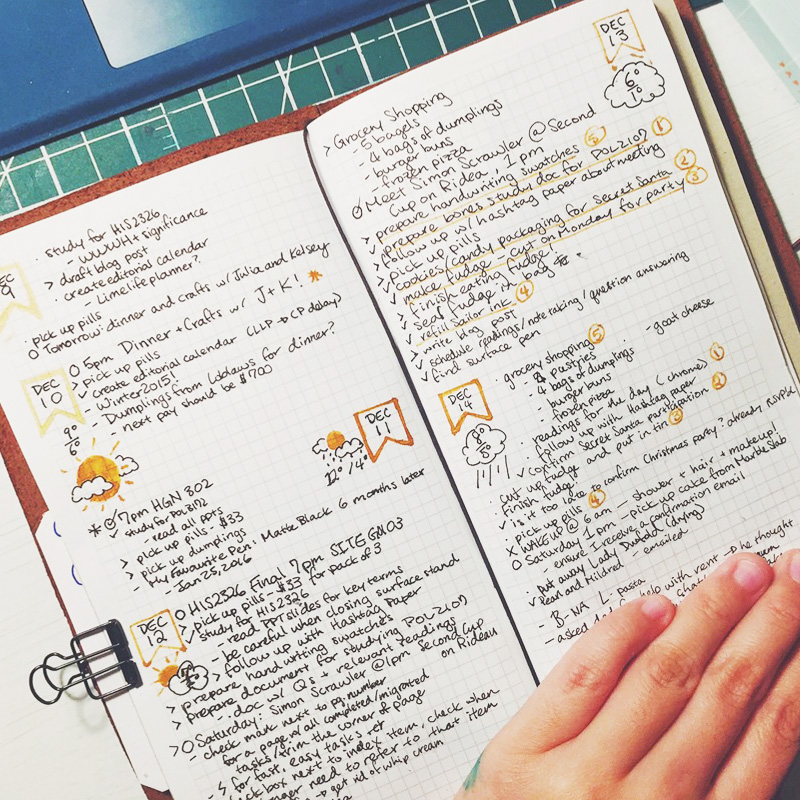 DEC
9
· study for HIS2326
- WWWWH + significance
> draft blog post
· create editorial calendar
- Limelifeplanner?
· pick up pills
O Tomorrow: dinner and crafts w/ Julia and Kelsey
DEC
10
9°
6°
O 5pm Dinner + Crafts w/ J + K! *
> pick up pills
✓ create editorial calendar (LLP → CP delay)
- Winter 2015
- Dumplings from Loblaws for dinner?
- next pay should be $700
DEC
11
12°/4°
* O 7pm HGN 302
✓ study for POL3172
- read all PPTs
> pick up pills - $33
> pick up dumplings
- My Favourite Pen: Matte Black 6 months later
- Jan 25, 2016
DEC
12
O HIS2326 Final 7pm SITE GM03
> pick up pills - $33 for pack of 3
✓ study for HIS2326
- read PPT slides for key terms
- be careful when closing surface stand
> follow up with Hashtag Paper
> prepare handwriting swatches
> prepare document for studying POL2101
- doc w/ Qs + relevant readings
> O Saturday: Simon Scrawler @1pm Second Cup
on Rideau
- check mark next to pg. number
for a page w/ all completed/migrated
tasks/trim the corner of page
- for fast, easy tasks
box next to index item, check when
longer need to refer to that item
get rid of whip cream
DEC
13
6°
1°
> Grocery Shopping
- 5 bagels
- 4 bags of dumplings
- burger buns
- frozen pizza
O Meet Simon Scrawler @ Second
Cup on Rideau, 1 pm
> prepare handwriting swatches 5
✓ prepare bones study doc for POL2101 1
> follow up w/ hashtag paper about meeting
> pick up pills 2
✓ cookies/candy packaging for Secret Santa
✓ make fudge - cut on Monday for party 3
> finish eating fudge!
✓ seal fudge in bag
✓ refill Sailor ink 4
> write blog post
✓ schedule readings/note taking/question answering
✓ find surface pen
DEC
14
8°
5°
· grocery shopping 5
- pastries - goat cheese
- 4 bags of dumplings
- burger buns
- frozen pizza
· readings for the day (chrome) 1
· follow up with Hashtag paper
✓ confirm Secret Santa participation 2
· cut up fudge and put in tin 3
· Finish fudge
✓ is it too late to confirm Christmas party? already RSVP'd
· pick up pills 4
X WAKE UP @ 6 am - shower + hair + makeup!
O Saturday 1 pm - pick up cake from Marble Slab
- ensure I receive a confirmation email
✓ put away Lady Dudad (drying)
✓ Pearl and Mildred - emailed
- B-NA L-pasta
- asked dad for help with rent → he thought